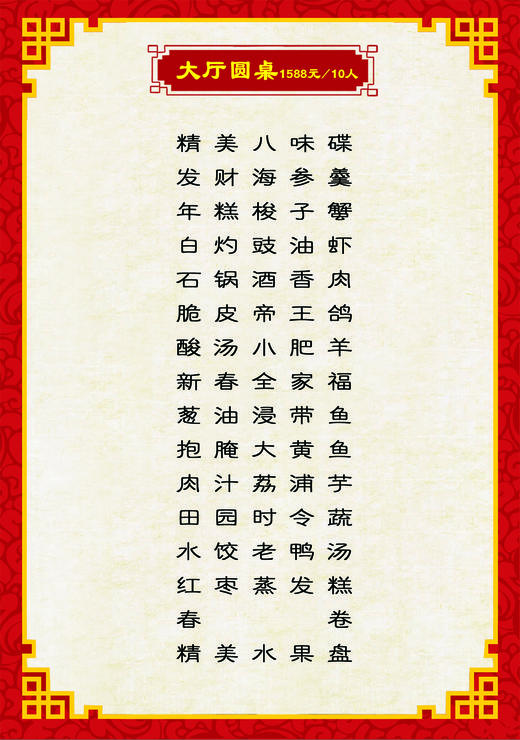 大厅圆桌1588元/10人
精美八味碟
发财海参羹
年糕梭子蟹
白灼豉油虾
石锅酒香肉
脆皮帝王鸽
酸汤小肥羊
新春全家福
葱油浸带鱼
抱腌大黄鱼
肉汁荔浦芋
田园时令蔬
水饺老鸭汤
红枣蒸发糕
春卷
精美水果盘